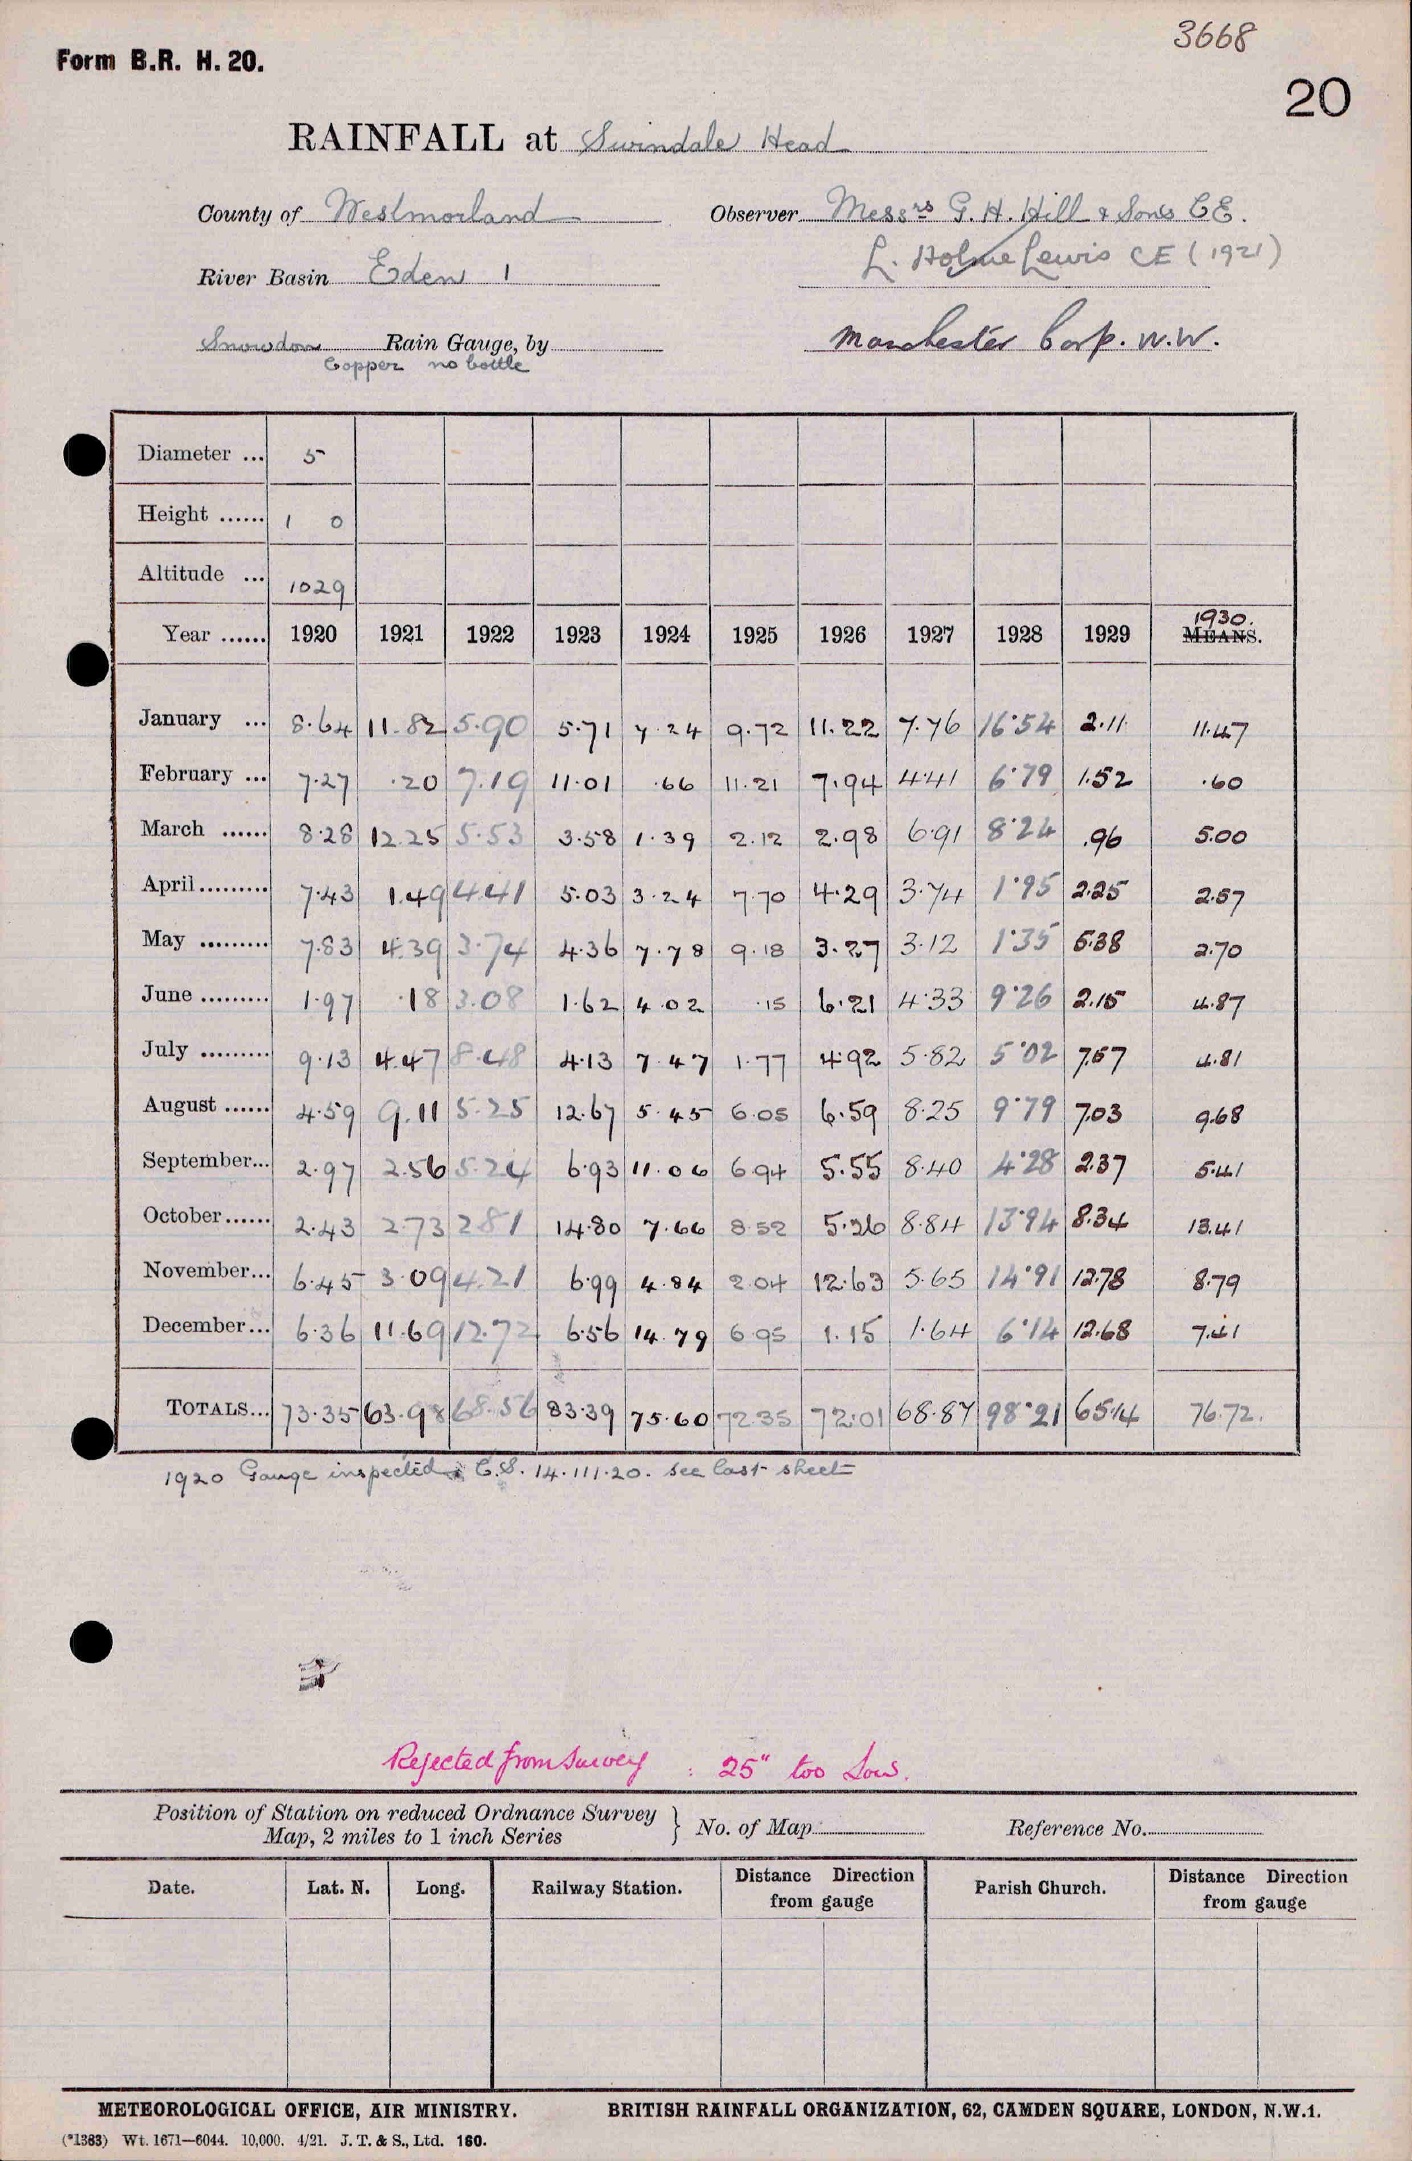 3668
Form B.R. H. 20.
20
RAINFALL at Swindale Head
County of Westmorland Observer Messrs G. H. Hill & Sons C.E.
L. Holme Lewis CE (1921)
River Basin Eden 1
Snowdon Rain Gauge, by Manchester Corp. W.W.
Copper no bottle
Diameter ... 5
Height ...... 1 0
Altitude ... 1029
Year ...... 1920 1921 1922 1923 1924 1925 1926 1927 1928 1929 1930. MEANS.
January ... 8.64 11.82 5.90 5.71 7.24 9.72 11.22 7.76 16.54 2.11 11.47
February ... 7.27 .20 7.19 11.01 .66 11.21 7.94 4.41 6.79 1.52 .60
March ...... 8.28 12.25 5.53 3.58 1.39 2.12 2.98 6.91 8.24 .96 5.00
April ......... 7.43 1.49 4.41 5.03 3.24 7.70 4.29 3.74 1.95 2.25 2.57
May ......... 7.83 4.39 3.74 4.36 7.78 9.18 3.27 3.12 1.35 5.38 2.70
June ......... 1.97 .18 3.08 1.62 4.02 .15 6.21 4.33 9.26 2.15 4.87
July ......... 9.13 4.47 8.48 4.13 7.47 1.77 4.92 5.82 5.02 7.57 4.81
August ...... 4.59 9.11 5.25 12.67 5.45 6.05 6.59 8.25 9.79 7.03 9.68
September... 2.97 2.56 5.24 6.93 11.06 6.94 5.55 8.40 4.28 2.37 5.41
October ...... 2.43 2.73 2.81 14.80 7.66 8.52 5.26 8.84 13.94 8.34 13.41
November... 6.45 3.09 4.21 6.99 4.84 2.04 12.63 5.65 14.91 12.78 8.79
December... 6.36 11.69 12.72 6.56 14.79 6.95 1.15 1.64 6.14 12.68 7.41
TOTALS... 73.35 63.98 68.56 83.39 75.60 72.35 72.01 68.87 98.21 65.14 76.72.
1920 Gauge inspected C.S. 14.III.20. see last sheet
Rejected from survey : 25" too Low.
Position of Station on reduced Ordnance Survey
Map, 2 miles to 1 inch Series } No. of Map Reference No.
Date. Lat. N. Long. Railway Station. Distance Direction from gauge Parish Church. Distance Direction from gauge
METEOROLOGICAL OFFICE, AIR MINISTRY. BRITISH RAINFALL ORGANIZATION, 62, CAMDEN SQUARE, LONDON, N.W.1.
(*1383) Wt. 1671—6044. 10,000. 4/21. J. T. & S., Ltd. 160.